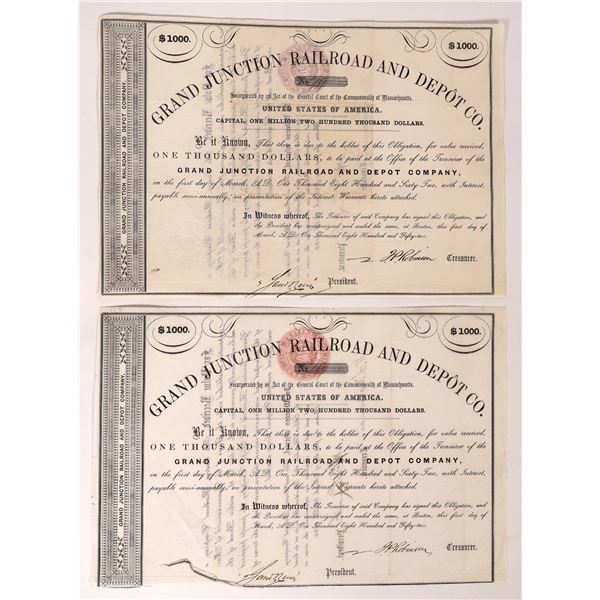 $1000.
$1000.
GRAND JUNCTION RAILROAD AND DEPÔT CO.
No.
Incorporated by an Act of the General Court of the Commonwealth of Massachusetts.
UNITED STATES OF AMERICA.
CAPITAL, ONE MILLION TWO HUNDRED THOUSAND DOLLARS.
GRAND JUNCTION RAILROAD AND DEPOT COMPANY,
Be it Known, That there is due to the holder of this Obligation, for value received,
ONE THOUSAND DOLLARS, to be paid at the Office of the Treasurer of the
GRAND JUNCTION RAILROAD AND DEPOT COMPANY,
on the first day of March, A.D. One Thousand Eight Hundred and Sixty-Two, with Interest,
payable semi-annually, on presentation of the Interest Warrants hereto attached.
In Witness whereof, The Treasurer of said Company has signed this Obligation, and
the President has countersigned and sealed the same, at Boston, this first day of
March, A.D. One Thousand Eight Hundred and Fifty-two.
Treasurer.
President.
$1000.
$1000.
GRAND JUNCTION RAILROAD AND DEPÔT CO.
No.
Incorporated by an Act of the General Court of the Commonwealth of Massachusetts.
UNITED STATES OF AMERICA.
CAPITAL, ONE MILLION TWO HUNDRED THOUSAND DOLLARS.
GRAND JUNCTION RAILROAD AND DEPOT COMPANY.
Be it Known, That there is due to the holder of this Obligation, for value received,
ONE THOUSAND DOLLARS, to be paid at the Office of the Treasurer of the
GRAND JUNCTION RAILROAD AND DEPOT COMPANY,
on the first day of March, A.D. One Thousand Eight Hundred and Sixty-Two, with Interest,
payable semi-annually, on presentation of the Interest Warrants hereto attached.
In Witness whereof, The Treasurer of said Company has signed this Obligation, and
the President has countersigned and sealed the same, at Boston, this first day of
March, A.D. One Thousand Eight Hundred and Fifty-two.
Treasurer.
President.